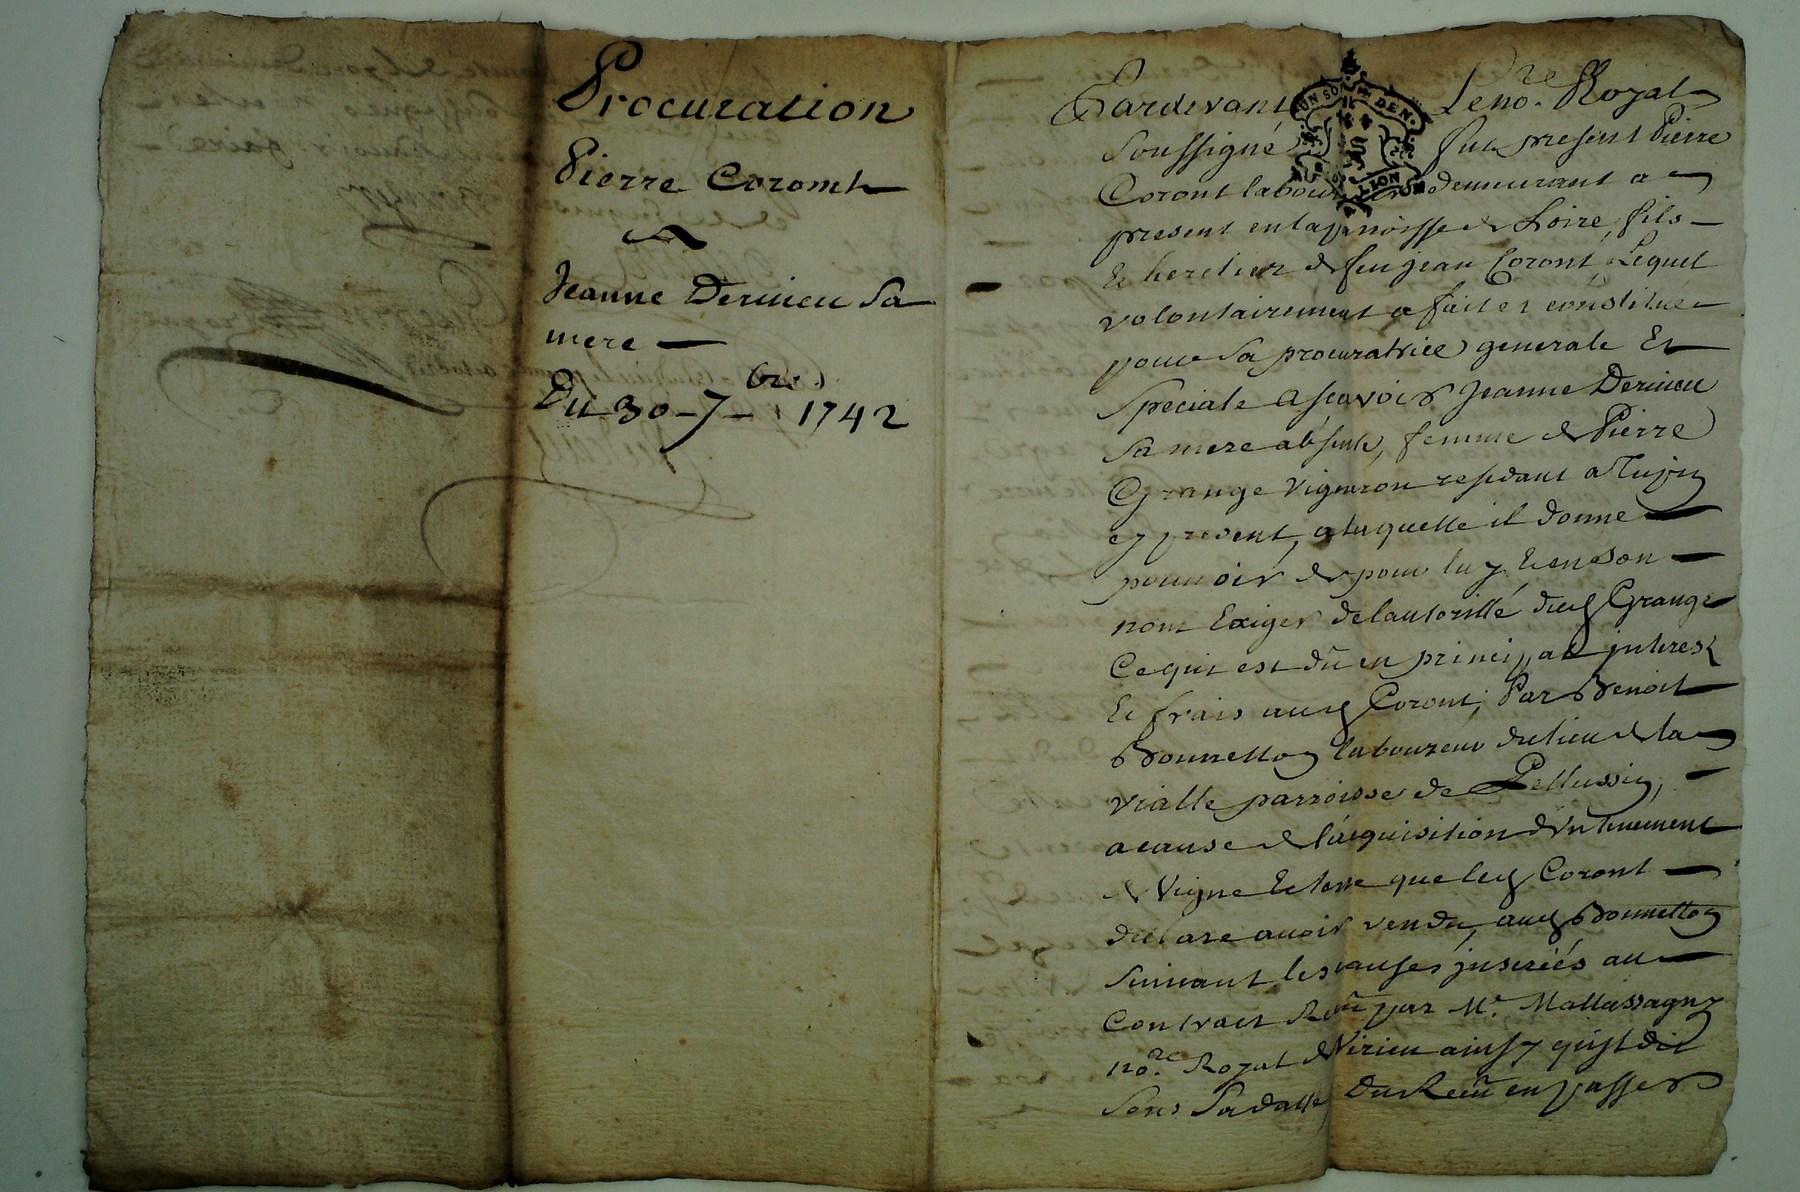 Procuration
Pierre Coromt
a
Jeanne Dervieu Sa
mere
Du 30 7bre 1742
Pardevant Le nore Royal
Soussigné fut present Pierre
Coront laboureur demeurant a
present en la parroisse de Loire, fils
& heretier de feu jean Coront, Lequel
volontairement a fait et constitué
pour Sa procuratrice generale Et
Speciale a scavoir Jeanne Dervieu
Sa mere absente, femme de Pierre
Grange Vigneron residant a Tupin
cy present, a laquelle il donne
pouvoir de pour luy & en son
nom Exiger de lautorité dud Grange
Ce qui est dû en principal interest
& frais aud Coront, Par Benoit
Bonnetton laboureur du lieu de la
vialle parroisse de Pellussin,
a cause de l'acquisition d'un tenement
de Vigne & terre que led Coront
declare avoir vendu, aud Bonnetton
Suivant les causes inserées au
Contract Reçu par Me. Mallassagny
nore. Royal de Virieu ainsy quist dit
Sous Sa datte, Du Reçu en passer
UN SOL DEN. LION